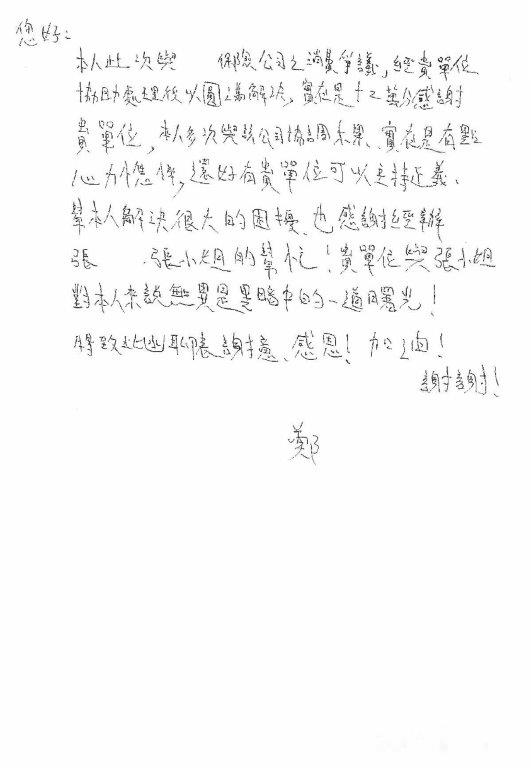 您好：
本人此次與 保險公司之消費爭議，經貴單位
協助處理後以圓滿解決，實在是十二萬分感謝
貴單位，本人多次與該公司協調未果、實在是有點
心力憔悴，還好有貴單位可以主持正義、
幫本人解決很大的困擾、也感謝經辦
張 張小姐的幫忙！貴單位與張小姐
對本人來說無異是黑暗中的一道曙光！
特致此函聊表謝意、感恩！加油！
謝謝！
鄭